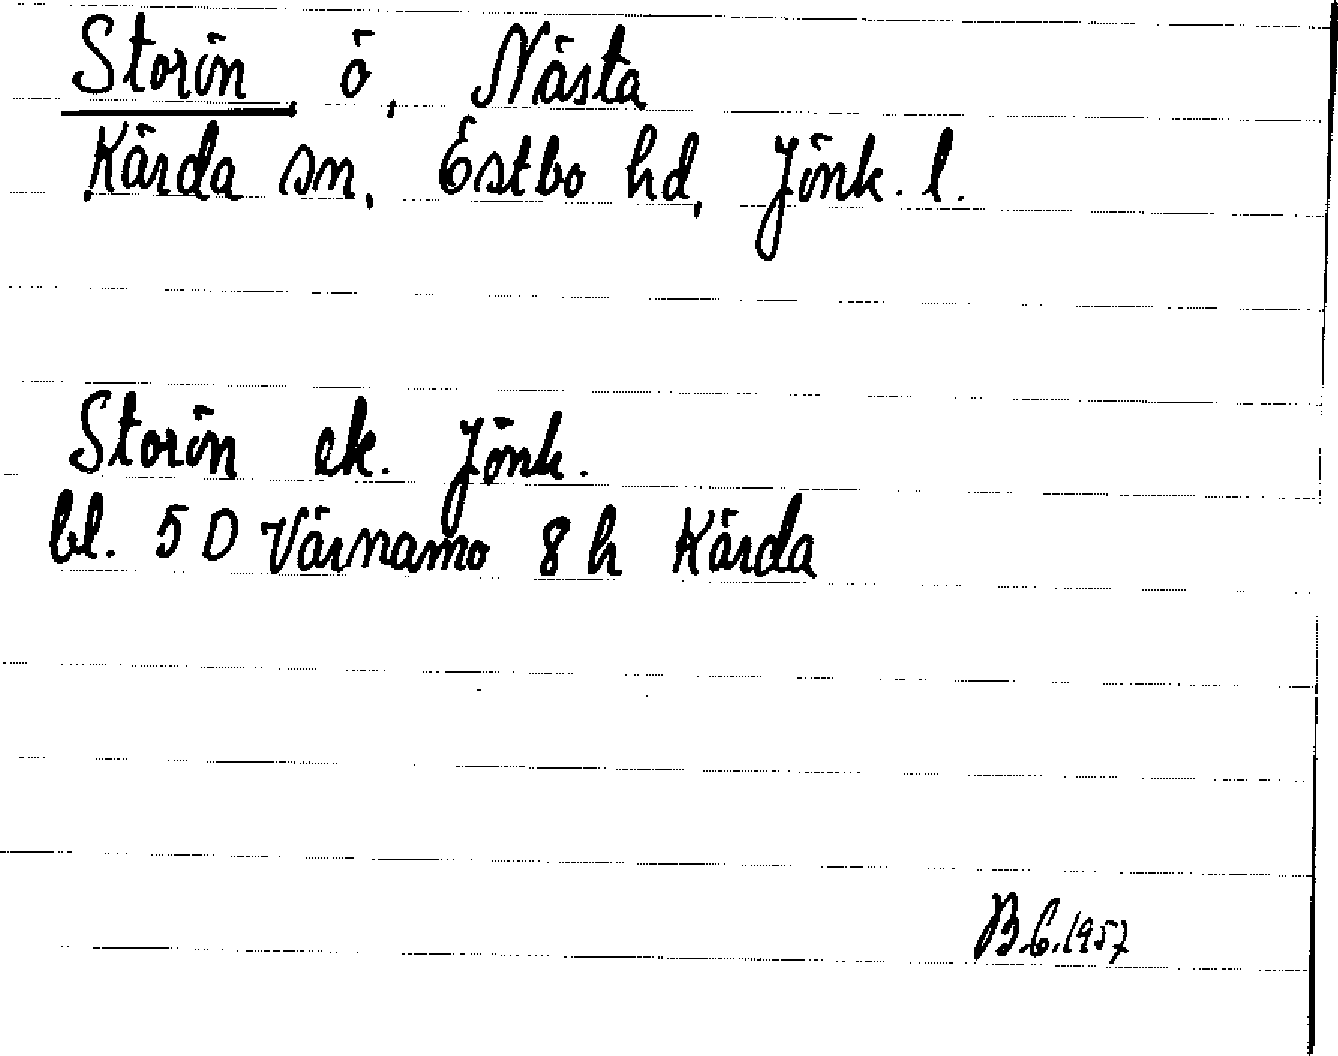 Storön ö, Nästa
Kärda sn, Östbo hd, Jönk. l.
Storön ek. Jönk.
bl. 5 D Värnamo 8 h Kärda
B.C. 1957